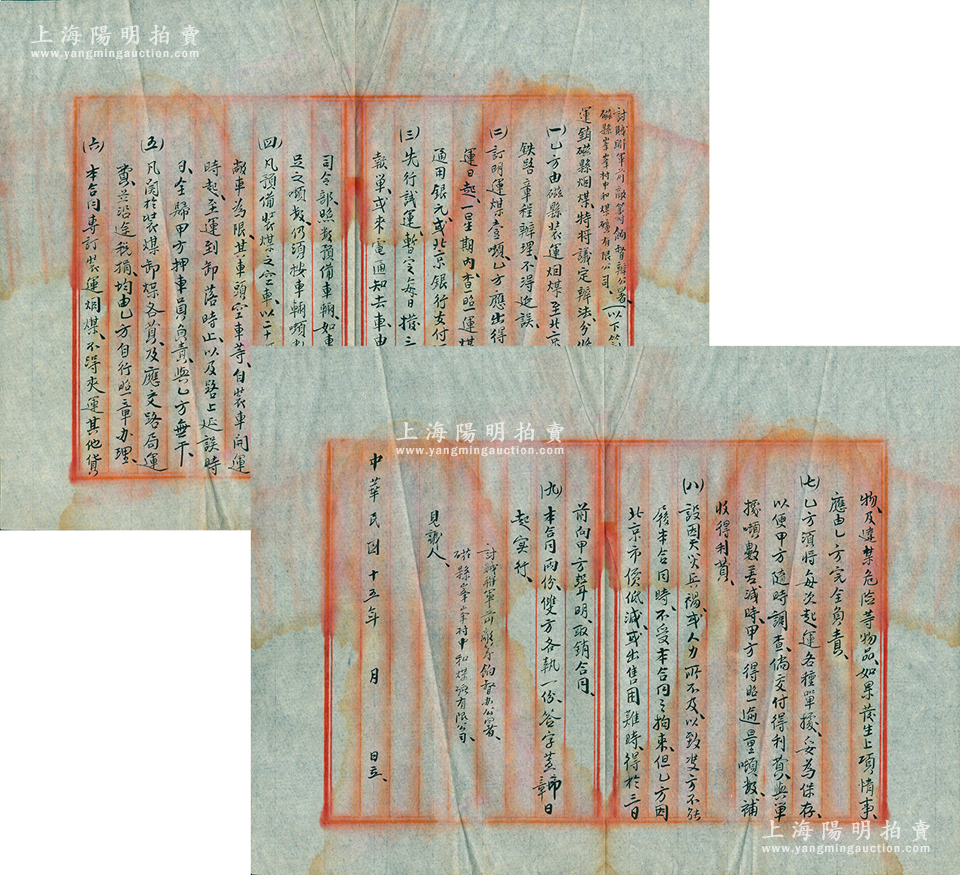 上海陽明拍賣
www.yangmingauction.com
磁縣峯峯村中和煤礦有限公司、
運銷磁縣烟煤、特將議定辦法分
(一)乙方由磁縣裝運烟煤至北京
鐵路章程辦理、不得延誤、
(二)訂明運煤壹噸、乙方應出得
運日起、一星期內、查照運煤
通用銀元、或北京銀行支付
(三)先行試運、暫定每日撥三
報單或來電通知去車由
司令部照數預備車輛、如車
足之噸數、仍須按車輛噸
(四)凡預備裝煤之空車、以二十
敞車為限、其車頭空車等、自裝車開運
時起、至運到卸落時止、以及路上延誤時
日、全歸甲方押車員負責、與乙方無干、
(五)凡關於裝煤卸煤各費、及應交路局運
費、並沿途稅捐、均由乙方自行照章办理、
(六)本合同專訂裝運烟煤、不得夾運其他貨
上海陽明拍賣
www.yangmingauction.com
物、及違禁危險等物品、如果發生上項情事、
應由乙方完全負責、
(七)乙方須將每次起運各種單據、妥為保存、
以便甲方隨時調查、倘交付得利費、與單
據噸數差減時、甲方得照逾量噸數、補
收得利費、
(八)設因天災兵禍、或人力所不及、以致雙方不能
履本合同時、不受本合同之拘束、但乙方因
北京市價低減、或出售困難時、得於三日
前向甲方聲明、取銷合同、
(九)本合同兩份、雙方各執一份、簽字蓋章即日
起實行、
磁縣峯峯村中和煤礦有限公司、
見議人
中華民國十五年 月 日立、
上海陽明拍賣
www.yangmingauction.com